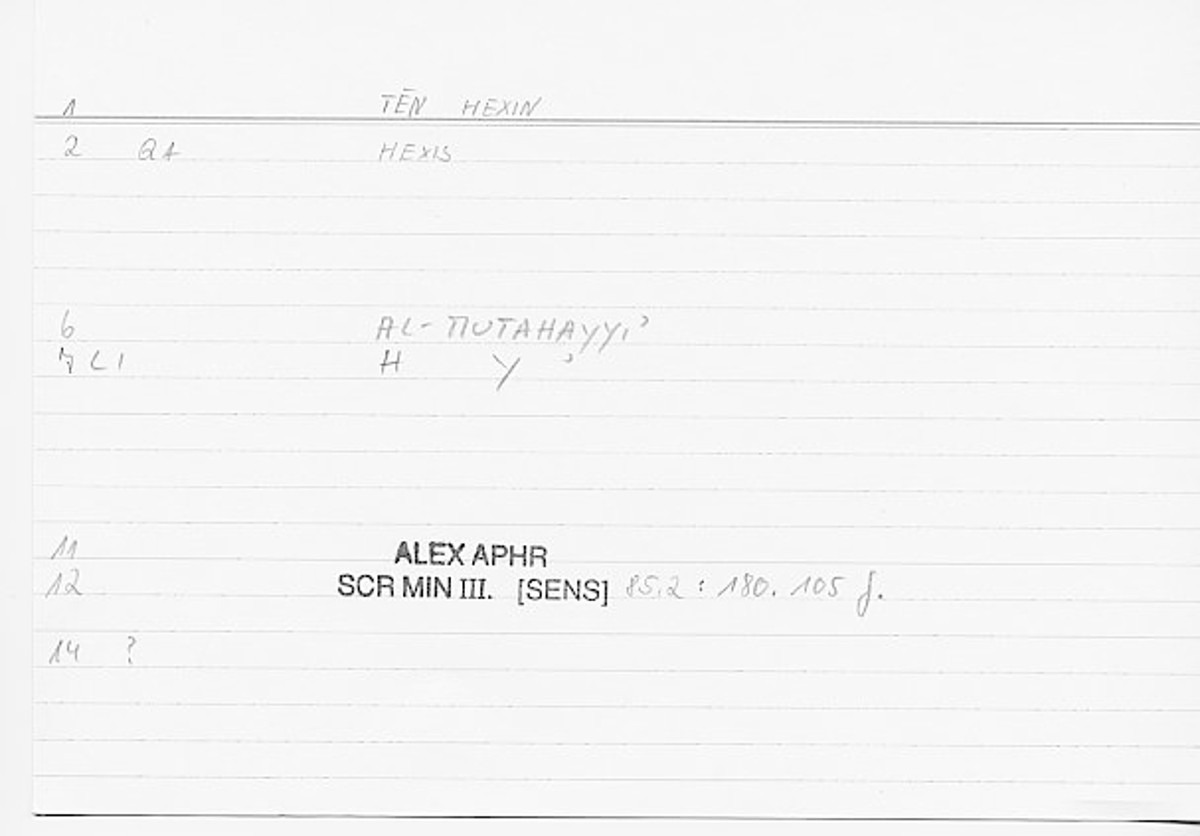 1 TĒN HEXIN
2 QA HEXIS
6 AL-MUTAHAYYIʾ
7 LI H Y ʾ
11 ALEX APHR
12 SCR MIN III. [SENS] 85.2 : 180. 105 f.
14 ?